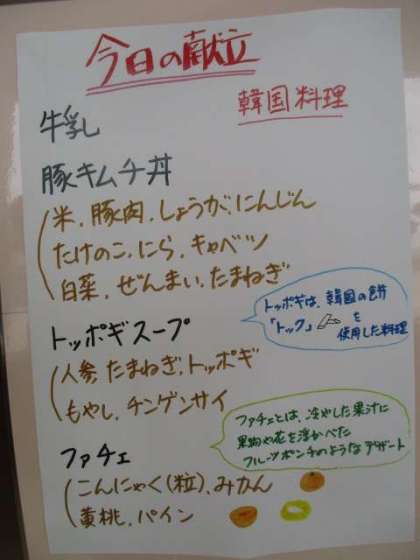 今日の献立
韓国料理
牛乳
豚キムチ丼
米、豚肉、しょうが、にんじん
たけのこ、にら、キャベツ
白菜、ぜんまい、たまねぎ
トッポギスープ
人参、たまねぎ、トッポギ
もやし、チンゲンサイ
トッポギは、韓国の餅
「トック」を
使用した料理
ファチェ
こんにゃく(粒)、みかん
黄桃、パイン
ファチェとは、冷やした果汁に
果物や花を浮かべた
フルーツポンチのようなデザート